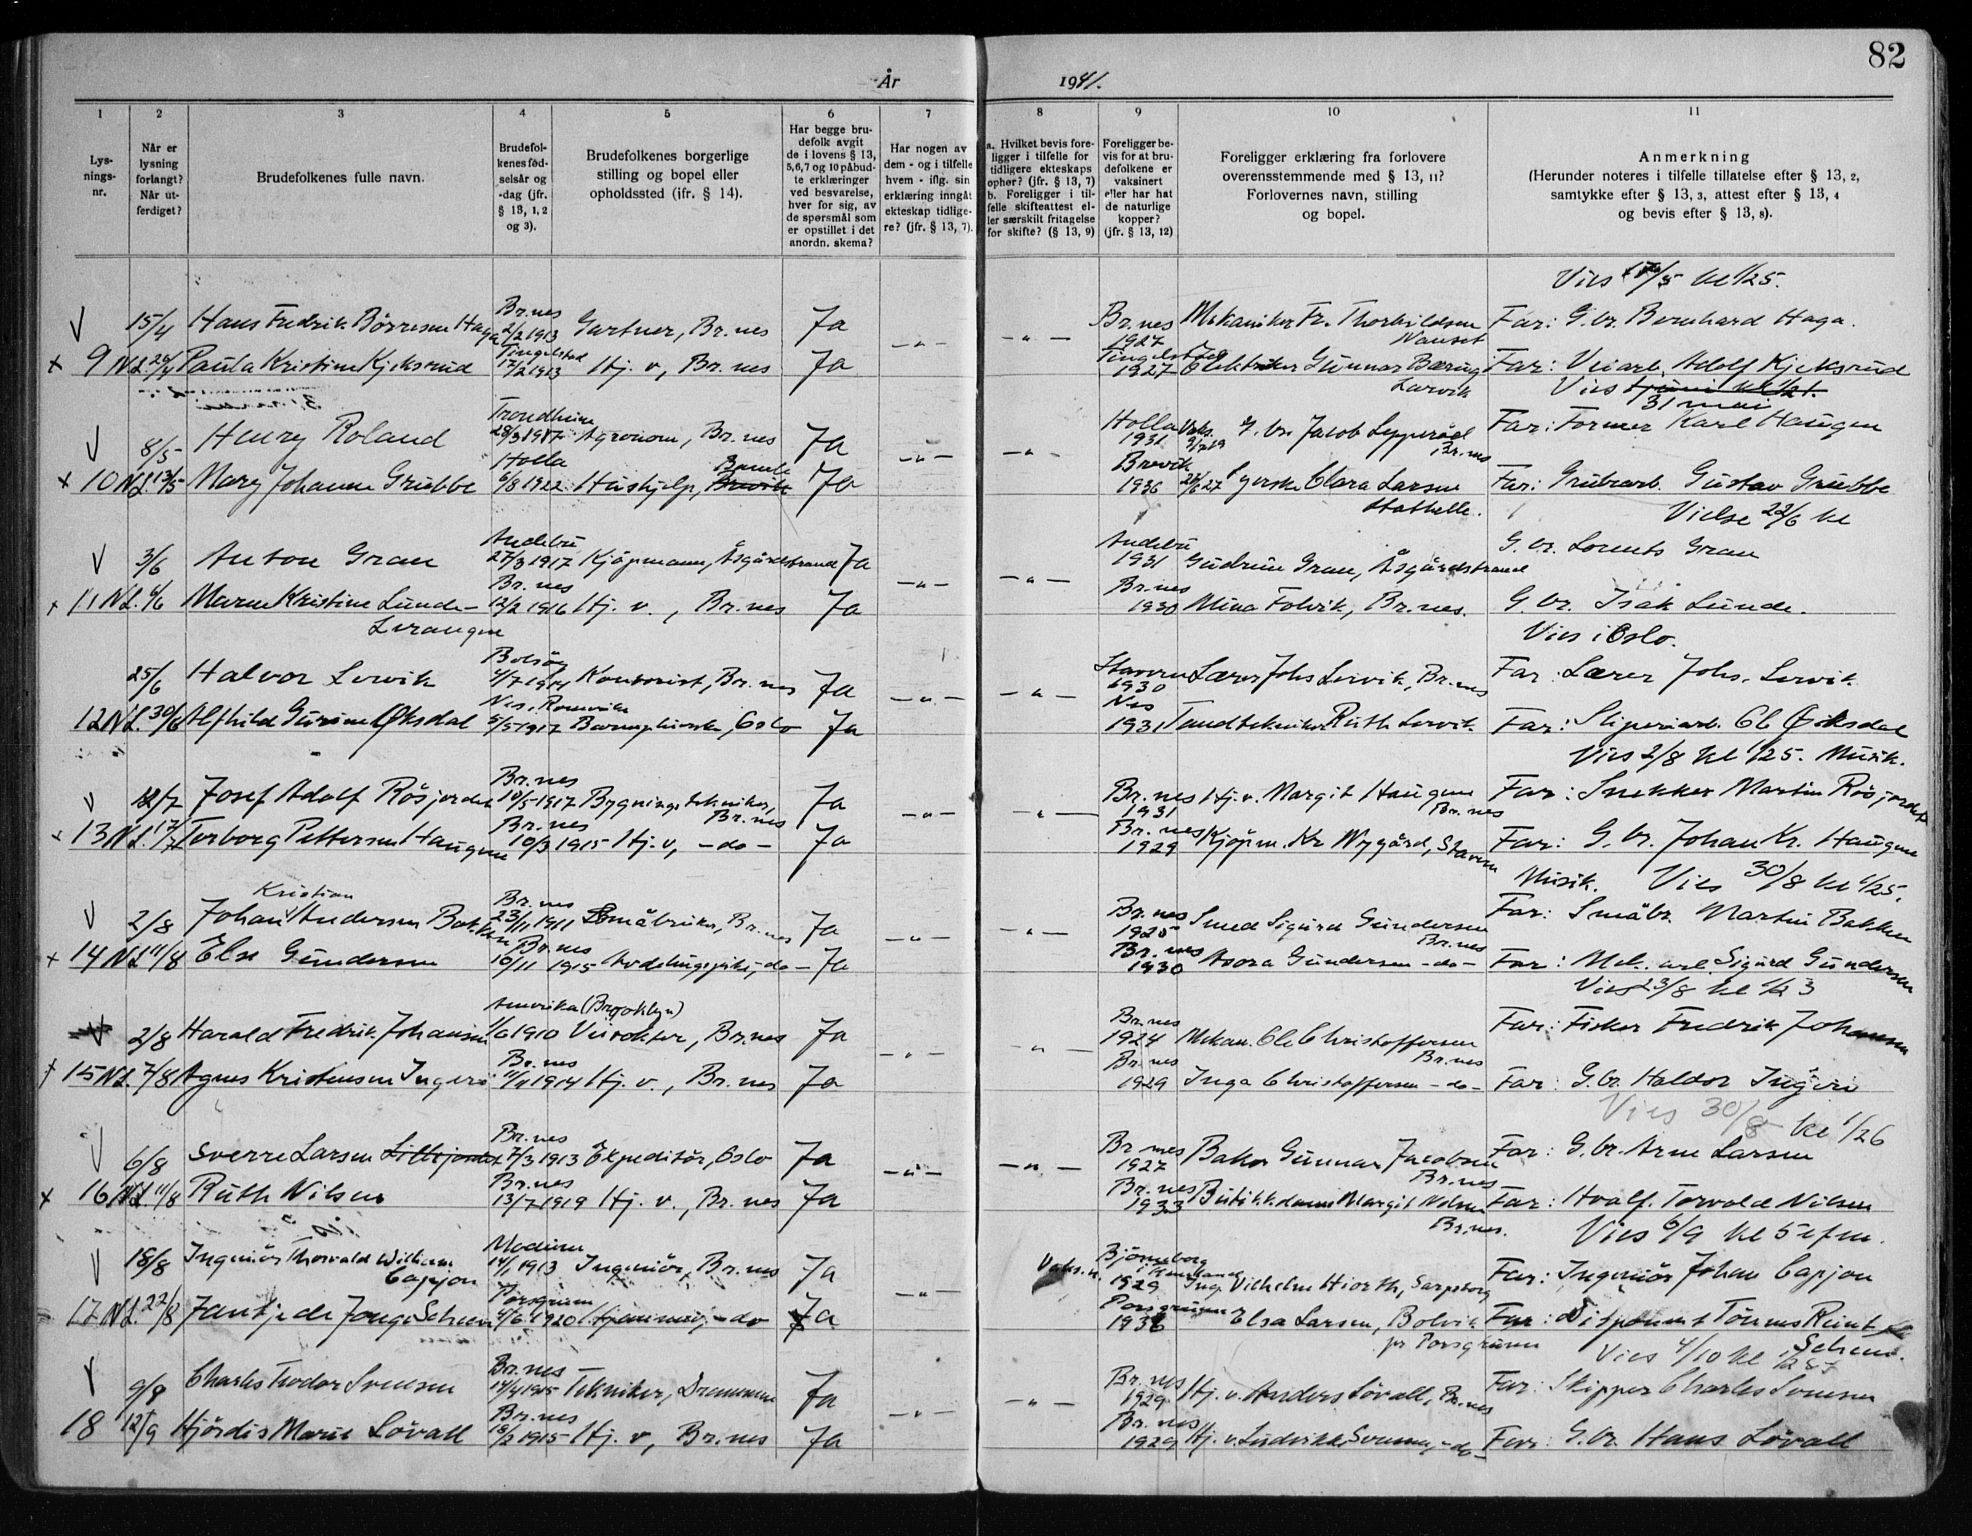 82
År 1941.
1 2 3 4 5 6 7 8 9 10 11
Lys-
nings-
nr.
Når er
lysning
forlangt?
Når ut-
ferdiget?
Brudefolkenes fulle navn.
Brudefol-
kenes fød-
selsår og
-dag (jfr.
§ 13, 1, 2
og 3).
Brudefolkenes borgerlige
stilling og bopel eller
opholdssted (ifr. § 14).
Har begge bru-
defolk avgit
de i lovens § 13,
5,6,7 og 10 påbud-
te erklæringer
ved besvarelse,
hver for sig, av
de spørsmål som
er opstillet i det
anordn. skema?
Har nogen av
dem - og i tilfelle
hvem - iflg. sin
erklæring inngåt
ekteskap tidlige-
re? (jfr. § 13, 7).
a. Hvilket bevis fore-
ligger i tilfelle for
tidligere ekteskaps
ophør? (jfr. § 13, 7)
b. Foreligger i til-
felle skifteattest el-
ler særskilt fritagelse
for skifte? (§ 13, 9)
Foreligger be-
vis for at bru-
defolkene er
vaksinert
eller har hat
de naturlige
kopper?
(jfr. § 13, 12)
Foreligger erklæring fra forlovere
overensstemmende med § 13, 11?
Forlovernes navn, stilling
og bopel.
Anmerkning
(Herunder noteres i tilfelle tillatelse efter § 13, 2,
samtykke efter § 13, 3, attest efter § 13, 4
og bevis efter § 13, 8).
Vies /5 kl 1/25.
V 15/4 Hans Fredrik Børresen Haga Br.nes 2/2 1913 Gartner, Br.nes Ja - " - - " - Br.nes 1927 Mekaniker Fr. Thorkildsen Nanset Far: G.br. Bernhard Haga.
x 9 N.L. 26/4 Paula Kristine Kjeksrud Tingelstad 17/2 1913 Hj. v, Br.nes Ja Tingelstad 1927 Elektriker Gunnar Bærug Larvik Far: Veiarb. Adolf Kjeksrud
Vies
31 mai
V 8/5 Henry Roland Trondheim 28/3 1917 Agronom, Br.nes Ja - " - - " - Holla 1931 G.br. Jacob Lepperød Br.nes Far: Former Karl Haugen
x 10 N.L. 13/5 Mary Johanne Grubbe Holla 6/8 1922 Hushjelp, Bamble Brevik Ja Brevik 1936 Clara Larsen Stathelle. Far: Grubearb. Gustav Grubbe
Vielse 22/6 kl
V 3/6 Anton Gran Andebu 27/3 1917 Kjøpmann, Åsgårdstrand Ja - " - - " - Andebu 1931 Gudrun Gran, Åsgårdstrand G.br. Lorents Gran
x 11 N.L. 6/6 Maren Kristine Lunde- Levangen Br.nes 12/2 1916 Hj. v., Br.nes Ja Br.nes 1930 Mina Folvik, Br.nes. G.br. Isak Lunde.
Vies i Oslo.
25/6 Halvor Lervik Bolsøy 4/7 1914 Kontorist, Br.nes Ja - " - - " - Stavern 1930 Lærer Johs Lervik, Br.nes Far: Lærer Johs. Lervik
12 N.L. 30/6 Alfhild Gurine Øksdal Nes, Romerike 5/5 1917 Barnepleierske, Oslo Ja Nes 1931 Tandtekniker Ruth Lervik Far: Sliperiarb. Ole Øiksdal
Vies 2/8 kl 1/25. Musik.
V 12/7 Josef Adolf Røsjordet Br.nes 19/5 1917 Bygningstekniker, Br.nes Ja - " - - " - Br.nes 1931 Hj.v. Margit Haugene Br.nes Far: Snekker Martin Røsjordet
x 13 N.L. 17/7 Torborg Pettersen Haugene Br.nes 10/3 1915 Hj.v, -do- Ja Br.nes 1929 Kjøpm. Kr Nygård, Stavern Far: G.br. Johan Kr. Haugene
Musik. Vies 30/8 kl 1/25.
V 2/8 Johan Kristian Andersen Bakken Br.nes 23/11 1911 Småbruker, Br.nes Ja - " - - " - Br.nes 1925 Smed Sigurd Gundersen Br.nes Far: Småbr. Martin Bakken
x 14 N.L. 11/8 Else Gundersen Br.nes 16/11 1915 Avdelingssjikj, -do- Ja Br.nes 1930 Asora Gundersen -do- Far: Mek. arb. Sigurd Gundersen
Vies 23/8 kl 1/2 3
V 2/8 Harald Fredrik Johansen Amerika (Brooklyn) 1/6 1910 Veivokter, Br.nes Ja - " - - " - Br.nes 1924 Mekan. Ole Christoffersen Br.nes Far: Fisker Fredrik Johansen
x 15 N.L. 7/8 Agnes Kristensen Ingerø Br.nes 11/11 1914 Hj. v., Br.nes Ja Br.nes 1929 Inga Christoffersen -do- Far: G.br. Haldor Ingerø
Vies 30/8 kl 1/26
V 6/8 Sverre Larsen Lillejordet Br.nes 7/3 1913 Ekspeditør, Oslo Ja - " - - " - Br.nes 1927 Baker Gunnar Jacobsen Br.nes Far: G.br. Arne Larsen
x 16 N.L. 11/8 Ruth Nilsen Br.nes 13/7 1919 Hj. v., Br.nes Ja Br.nes 1933 Butikkdame Margit Nilsen Br.nes. Far: Hvalf. Torvald Nilsen
Vies 6/9 kl 5 efm.
V 18/8 Ingeniør Thorvald Wilhelm Capjon Modum 14/1 1913 Ingeniør, Br.nes Ja - " - Bjørneborg 1929 Ing. Vilhelm Hiorth, Sarpsborg Far: Ingeniør Johan Capjon
17 N.L. 22/8 Jantje de Jonge Scheen Porsgrunn 4/6 1920 Hjemmev., -do Ja Porsgrunn Elsa Larsen, Bolvik pr Porsgrunn Far: Disponent Tønnes Reint Scheen.
Vies 4/10 kl 1/25
V 9/9 Charles Teodor Svensen Br.nes 14/4 1915 Tekniker, Drammen Ja - " - - " - Br.nes 1929 Hj.v. Anders Løvall, Br.nes Far: Skipper Charles Svensen
18 12/9 Hjørdis Marie Løvall Br.nes 18/2 1915 Hj. v, Br.nes Ja Br.nes 1929 Hj. v. Ludvikke Svensen, -do- Far: G.br. Hans Løvall